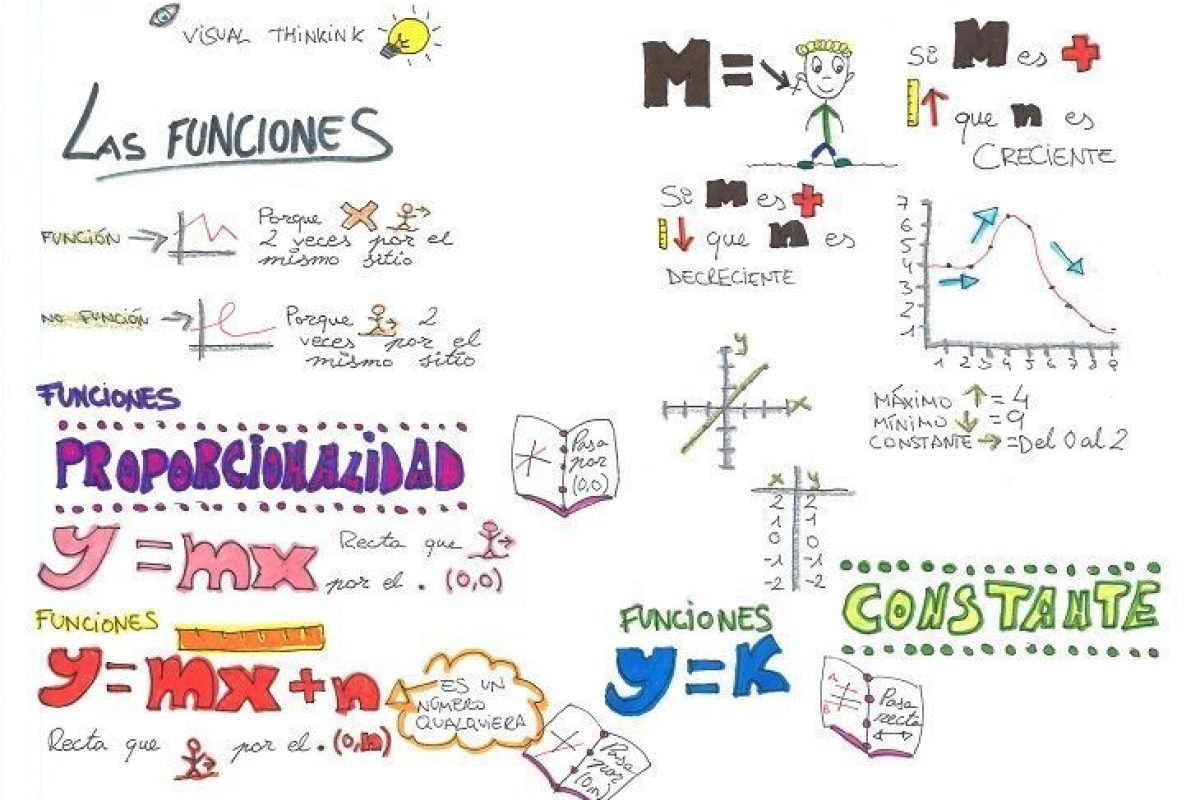 VISUAL THINKINK
LAS FUNCIONES
FUNCIÓN
Porque
2 veces por el
mismo sitio
NO FUNCIÓN
Porque 2
veces por el
mismo sitio
FUNCIONES
PROPORCIONALIDAD
Pasa
por
(0,0)
y=mx
Recta que
por el . (0,0)
FUNCIONES
y=mx+n
ES UN
NÚMERO
QUALQUIERA
Recta que por el . (0,n)
Pasa
por
(0,n)
M =
Si M es +
que n es
CRECIENTE
Si M es +
que n es
DECRECIENTE
7
6
5
4
3
2
1
1 2 3 4 5 6 7 8 9
MÁXIMO = 4
MÍNIMO = 9
CONSTANTE = Del 0 al 2
y
x
x y
2 2
1 1
0 0
-1 -1
-2 -2
FUNCIONES
CONSTANTE
y=K
A
B
Pasa
recta